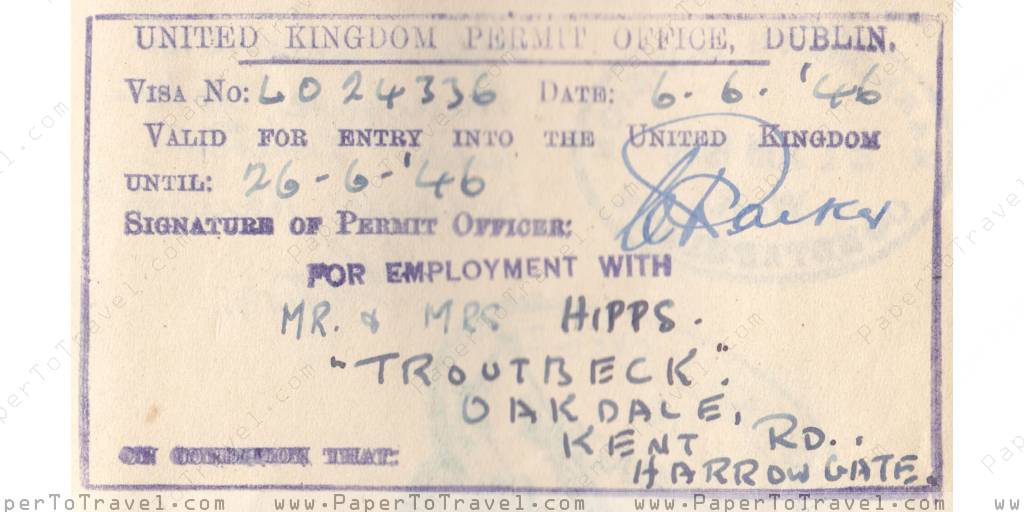 UNITED KINGDOM PERMIT OFFICE, DUBLIN.
VISA No: LO 24336 DATE: 6.6.'46
VALID FOR ENTRY INTO THE UNITED KINGDOM
UNTIL: 26-6-'46
SIGNATURE OF PERMIT OFFICER: Parker
FOR EMPLOYMENT WITH
MR. & MRS HIPPS.
"TROUTBECK".
OAKDALE,
KENT RD..
HARROWGATE.
ON CONDITION THAT:
www.PaperToTravel.com